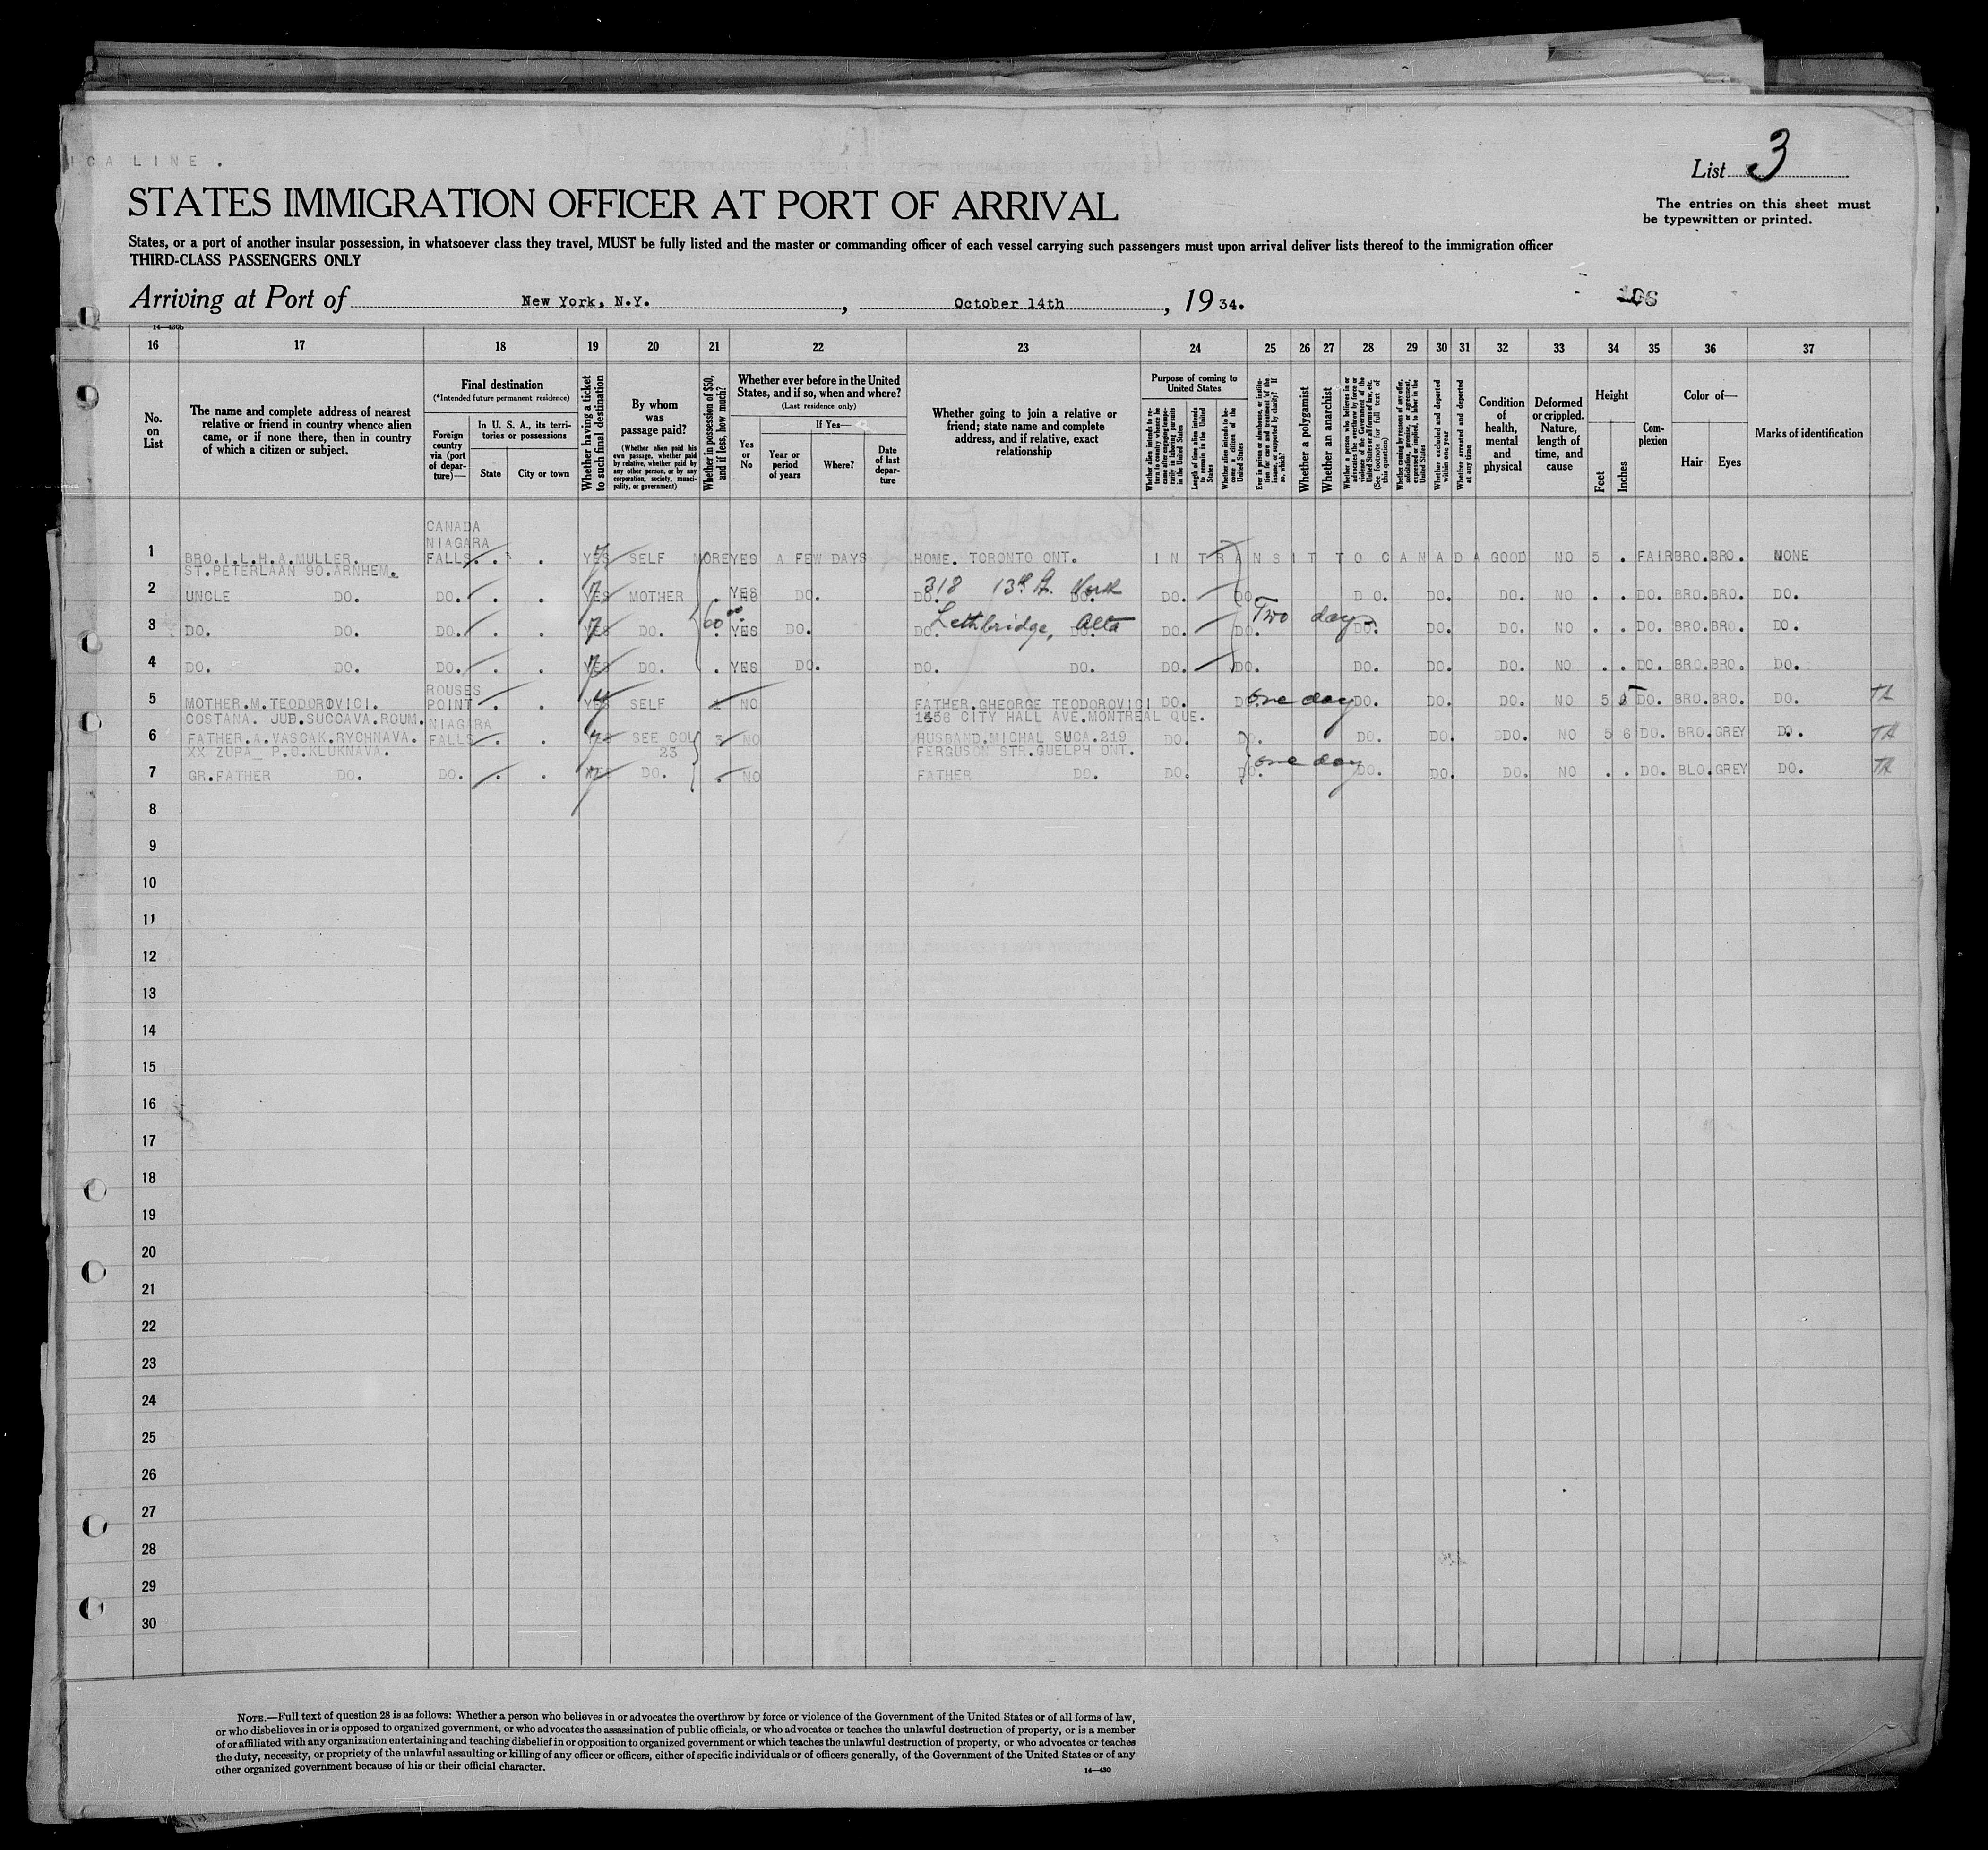 I C A L I N E .
List 3
STATES IMMIGRATION OFFICER AT PORT OF ARRIVAL
The entries on this sheet must
be typewritten or printed.
States, or a port of another insular possession, in whatsoever class they travel, MUST be fully listed and the master or commanding officer of each vessel carrying such passengers must upon arrival deliver lists thereof to the immigration officer
THIRD-CLASS PASSENGERS ONLY
Arriving at Port of New York, N.Y. , October 14th , 19 34.
14—430b
16 17 18 19 20 21 22 23 24 25 26 27 28 29 30 31 32 33 34 35 36 37
No. on List
The name and complete address of nearest
relative or friend in country whence alien
came, or if none there, then in country
of which a citizen or subject.
Final destination
(*Intended future permanent residence)
Foreign country via (port of depar-ture)—
In U. S. A., its terri-
tories or possessions
State City or town
Whether having a ticket
to such final destination
By whom
was
passage paid?
(Whether alien paid his
own passage, whether paid
by relative, whether paid by
any other person, or by any
corporation, society, munci-
pality, or government)
Whether in possession of $50,
and if less, how much?
Whether ever before in the United
States, and if so, when and where?
(Last residence only)
Yes or No
If Yes—
Year or period of years
Where?
Date of last depar-ture
Whether going to join a relative or
friend; state name and complete
address, and if relative, exact
relationship
Purpose of coming to
United States
Whether alien intends to re-
turn to country whence he
came after engaging tempo-
rarily in laboring pursuits
in the United States
Length of time alien intends
to remain in the United
States
Whether alien intends to be-
come a citizen of the
United States
Ever in prison or almshouse, or institu-
tion for care and treatment of the
insane, or supported by charity? If
so, which?
Whether a polygamist
Whether an anarchist
Whether a person who believes in or
advocates the overthrow by force or
violence of the Government of the
United States or all forms of law, etc.
(See footnote for full text of
this question)
Whether coming by reasons of any offer,
solicitation, promise, or agreement,
expressed or implied, to labor in the
United States
Whether excluded and deported
within one year
Whether arrested and deported
at any time
Condition
of
health,
mental
and
physical
Deformed
or crippled.
Nature,
length of
time, and
cause
Height
Feet Inches
Com-
plexion
Color of—
Hair Eyes
Marks of identification
CANADA
NIAGARA
1 BRO.I.L.H.A.MULLER. FALLS. . . YES SELF MORE YES A FEW DAYS HOME. TORONTO ONT. I N T R A N S I T T O C A N A D A GOOD NO 5 . FAIR BRO. BRO. NONE
ST.PETERLAAN 90.ARNHEM.
2 UNCLE DO. DO. . . YES MOTHER . YES DO. DO. 318 13th St. North DO. DO. DO. D O. DO. DO. NO . . DO. BRO. BRO. DO.
3 DO. DO. DO. . . YES DO. 60 00 . YES DO. DO. Lethbridge, Alta DO. DO. DO. Two days DO. DO. DO. NO . . DO. BRO. BRO. DO.
4 DO. DO. DO. . . YES DO. . YES DO. DO. DO. DO. DO. DO. DO. DO. NO . . DO. BRO. BRO. DO.
ROUSES
5 MOTHER.M.TEODOROVICI. POINT . . YES SELF NO FATHER.GHEORGE TEODOROVICI DO. DO. one day DO. DO. DO. NO 5 5 DO. BRO. BRO. DO.
COSTANA. JUD.SUCCAVA.ROUM. NIAGARA 1456 CITY HALL AVE.MONTREAL QUE.
6 FATHER.A.VASCAK.RYCHNAVA. FALLS . . YES SEE COL 3 NO HUSBAND.MICHAL SUCA.219 DO. DO. DO. DO. DDO. NO 5 6 DO. BRO. GREY DO. TA
XX ZUPA P.O.KLUKNAVA. 23 FERGUSON STR.GUELPH ONT.
7 GR.FATHER DO. DO. . . DO. . NO FATHER DO. DO. DO. one day DO. DO. DO. NO . . DO. BLO. GREY DO. TA
8
9
10
11
12
13
14
15
16
17
18
19
20
21
22
23
24
25
26
27
28
29
30
NOTE.—Full text of question 28 is as follows: Whether a person who believes in or advocates the overthrow by force or violence of the Government of the United States or of all forms of law,
or who disbelieves in or is opposed to organized government, or who advocates the assassination of public officials, or who advocates or teaches the unlawful destruction of property, or is a member
of or affiliated with any organization entertaining and teaching disbelief in or opposition to organized government or which teaches the unlawful destruction of property, or who advocates or teaches
the duty, necessity, or propriety of the unlawful assaulting or killing of any officer or officers, either of specific individuals or of officers generally, of the Government of the United States or of any
other organized government because of his or their official character.
14—430